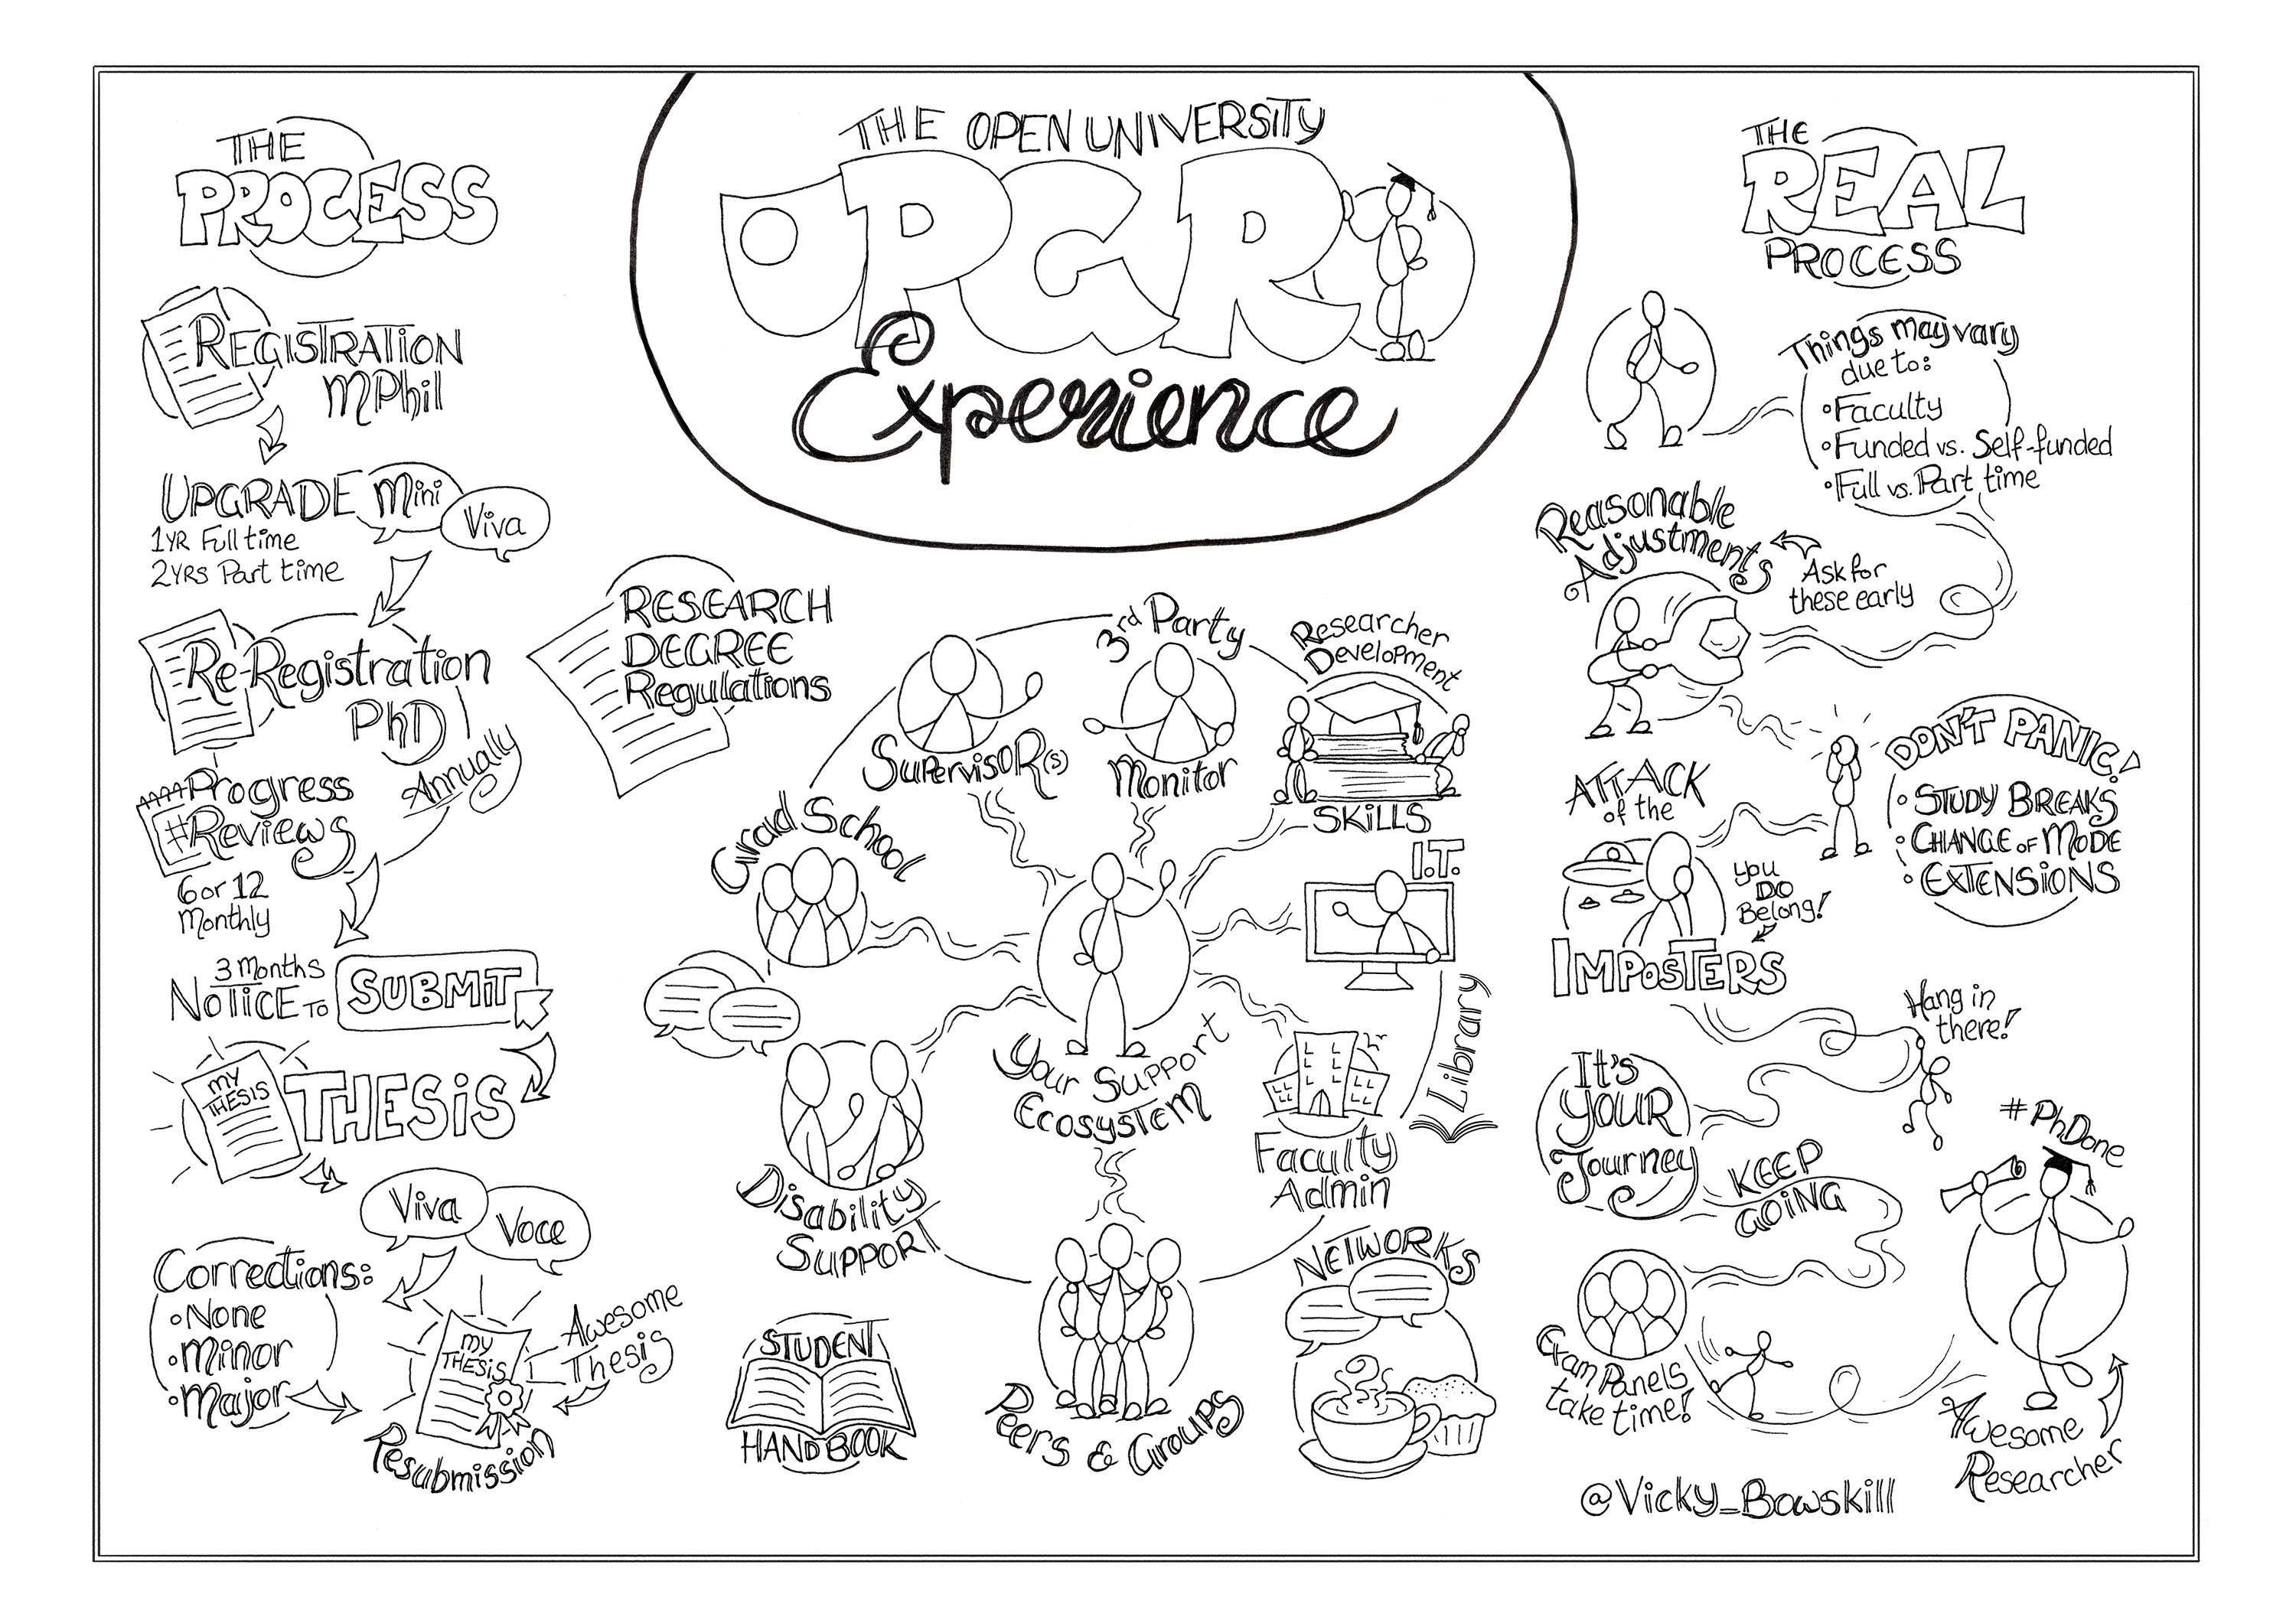 THE OPEN UNIVERSITY
PGR
Experience
THE
PROCESS
REGISTRATION
MPhil
UPGRADE Mini
Viva
1YR Full time
2YRS Part time
Re-Registration
PhD
Annually
Progress
#Reviews
6 or 12
Monthly
3 Months
NOTICE TO
SUBMIT
MY
THESIS
THESIS
Viva
Voce
Corrections:
•None
•Minor
•Major
MY
THESIS
Awesome
Thesis
Resubmission
RESEARCH
DEGREE
Regulations
Supervisor(s)
3rd Party
Monitor
Researcher
Development
SKILLS
Grad School
I.T.
Library
Your Support
Ecosystem
Faculty
Admin
Disability
Support
STUDENT
HANDBOOK
Peers & Groups
NETWORKS
THE
REAL
PROCESS
Things may vary
due to:
•Faculty
•Funded vs. Self-funded
•Full vs. Part time
Reasonable
Adjustments
Ask for
these early
DON'T PANIC!
•STUDY BREAKS
•CHANGE OF MODE
•EXTENSIONS
ATTACK
of the
IMPOSTERS
You
DO
Belong!
Hang in
there!
It's
YOUR
Journey
KEEP
GOING
Exam Panels
take time!
#PhDone
Awesome
Researcher
@Vicky_Bowskill